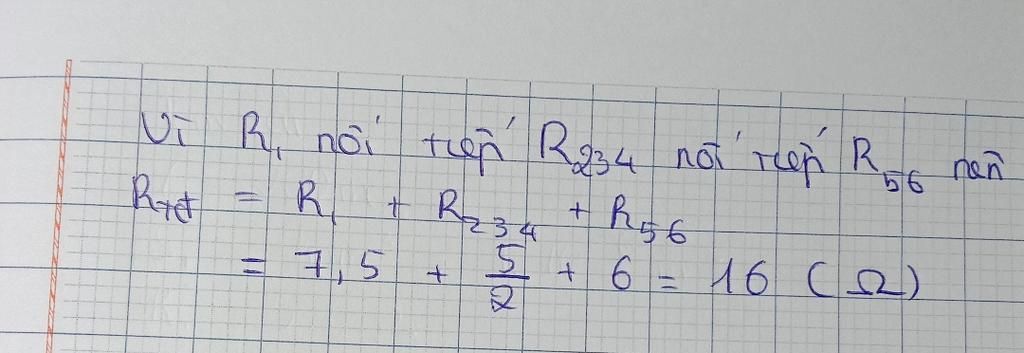 Vì R₁ nối tiếp R₂₃₄ nối tiếp R₅₆ nên
Rtđ = R₁ + R₂₃₄ + R₅₆
= 7,5 + 5/2 + 6 = 16 (Ω)